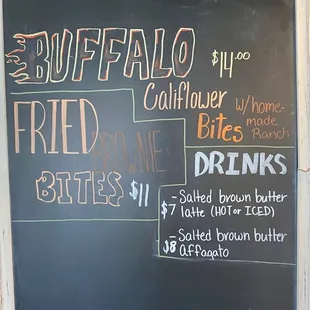 BUFFALO $14.00
Califlower
Bites w/home-
made
Ranch
FRIED
BROWNIE
BITES $11
DRINKS
- Salted brown butter
$7 latte (HOT or ICED)
- Salted brown butter
$8 Affagato